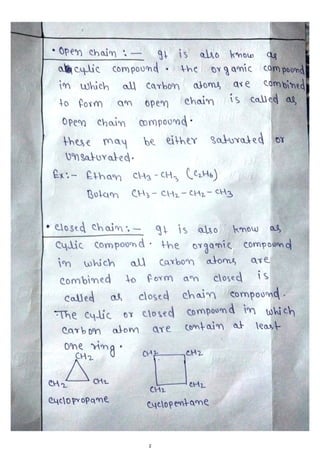 • Open chain :— It is also know as
acyclic compound. the organic compound
in which all carbon atoms are combined
to form an open chain is called as,
Open chain compound.
these may be either saturated or
Unsaturated.
Ex:- Ethan CH3-CH3 (C2H6)
Butan CH3-CH2-CH2-CH3
• closed chain :— It is also know as
Cyclic compound. the organic compound
in which all carbon atoms are
combined to form an closed is
called as closed chain compound.
The cyclic or closed compound in which
carbon atom are contain at least
One ring.
CH2 CH2 CH2
CH2 CH2 CH2 CH2
cyclopropane cyclopentane
2